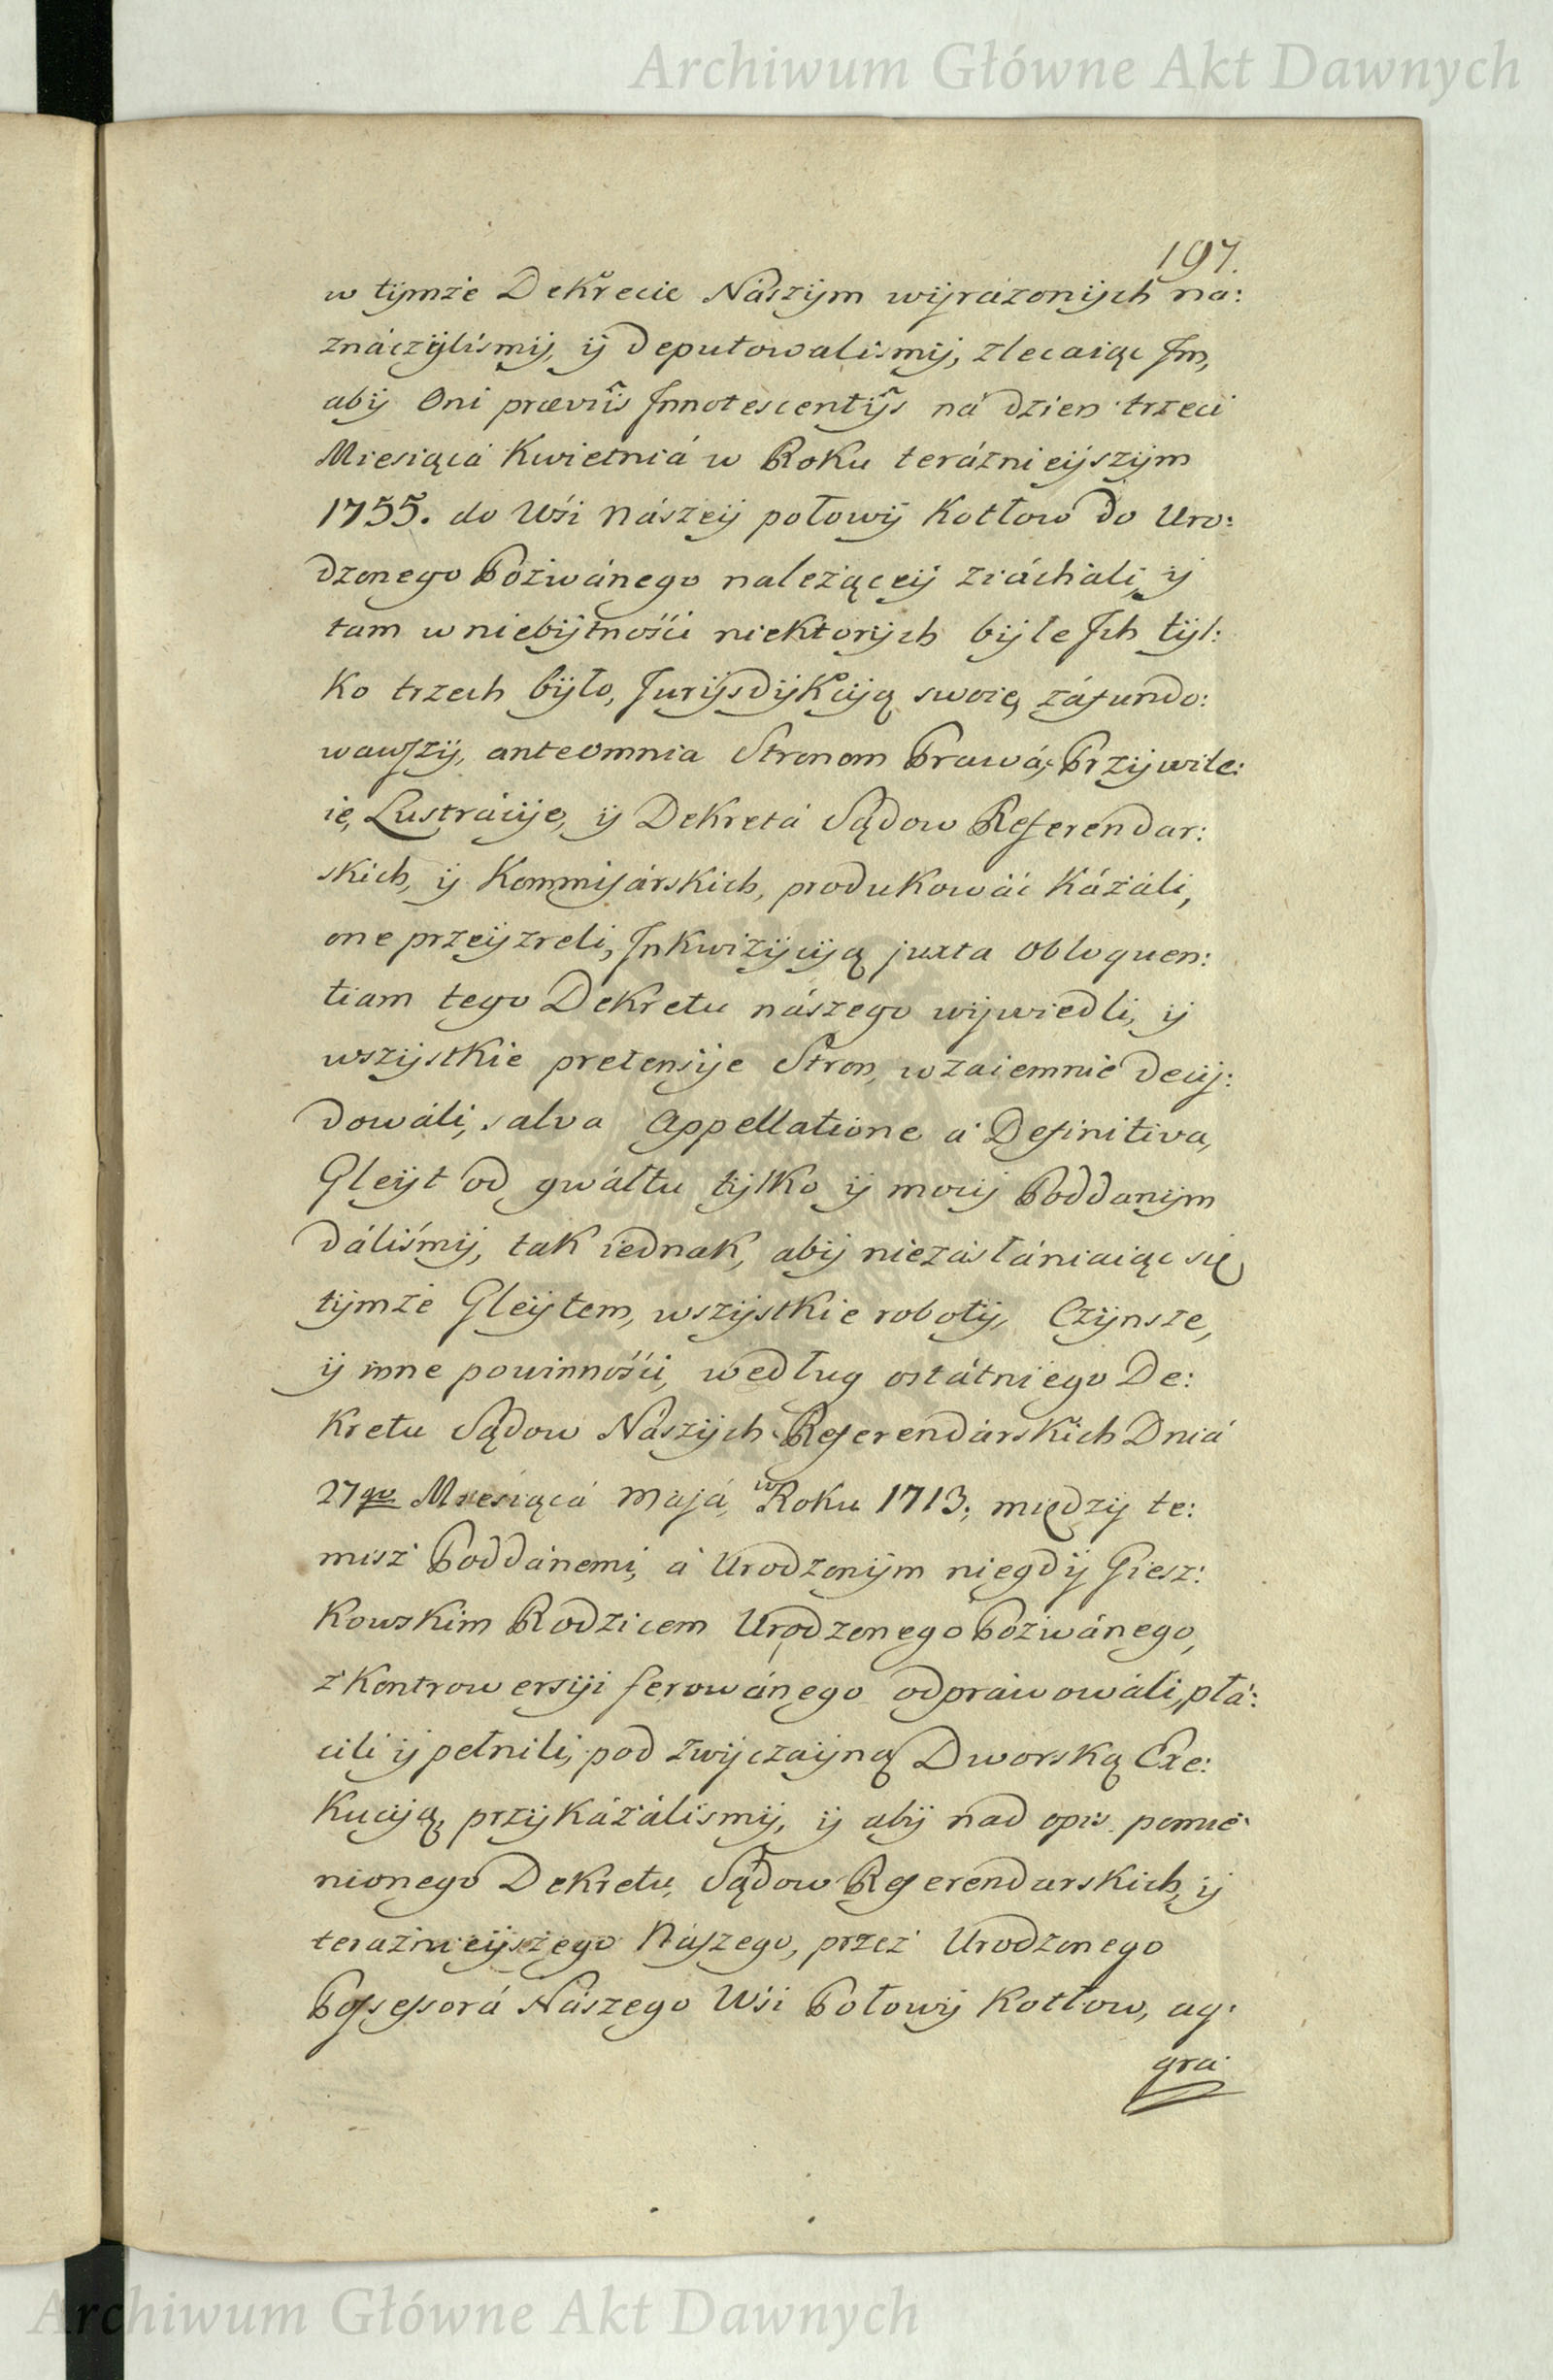 Archiwum Główne Akt Dawnych
197.
w tymże Dekrecie Nászym wyráżonych na:
znáczyliśmy, y deputowaliśmy, zlecaiąc Im,
aby Oni præviis Innotescentÿs ná dzien trzeci
Miesiącá Kwietniá w Roku teráżnieyszym
1755. do Wśi Nászey połowy Kotłow do Uro:
dzonego Pozwánego należącey ziácháli, y
tam w niebytnośći niektorych byle Ich tyl:
ko trzech było, Jurysdykcyą swoię záfundo:
wawszy, ante omnia Stronom Prawá, Przywile:
ie, Lustrácye, y Dekretá Sądow Referendar:
skich, y Kommisárskich, produkowáć kázáli,
one przeyzreli, Inkwizycyą juxta Obloquen:
tiam tego Dekretu nászego wywiedli, y
wszystkie pretensye Stron, wzaiemnie decy:
dowáli, salva Appellatione á Definitiva,
Gleyt od gwáłtu tylko y mocy Poddanym
dáliśmy, tak iednak, aby niezásłániaiąc się
tymże Gleytem, wszystkie roboty, Czynsze,
y inne powinnośći, według ostátniego De:
kretu Sądow Nászych Referendárskich Dniá
27go Miesiącá Majá, w Roku 1713. między te:
misz Poddánemi, á Urodzonym niegdy Giesz:
kowskim Rodzicem Urodzonego Pozwánego,
z kontrowersyi ferowánego odpráwowáli, płá:
cili y pełnili, pod zwyczayną Dworską Exe:
kucyą, przykázáliśmy, y aby nad opis pomie:
nionego Dekretu, Sądow Referendarskich, y
teraźnieyszego Nászego, przez Urodzonego
Possessorá Nászego Wśi Połowy Kotłow, ag:
gra:
Archiwum Główne Akt Dawnych